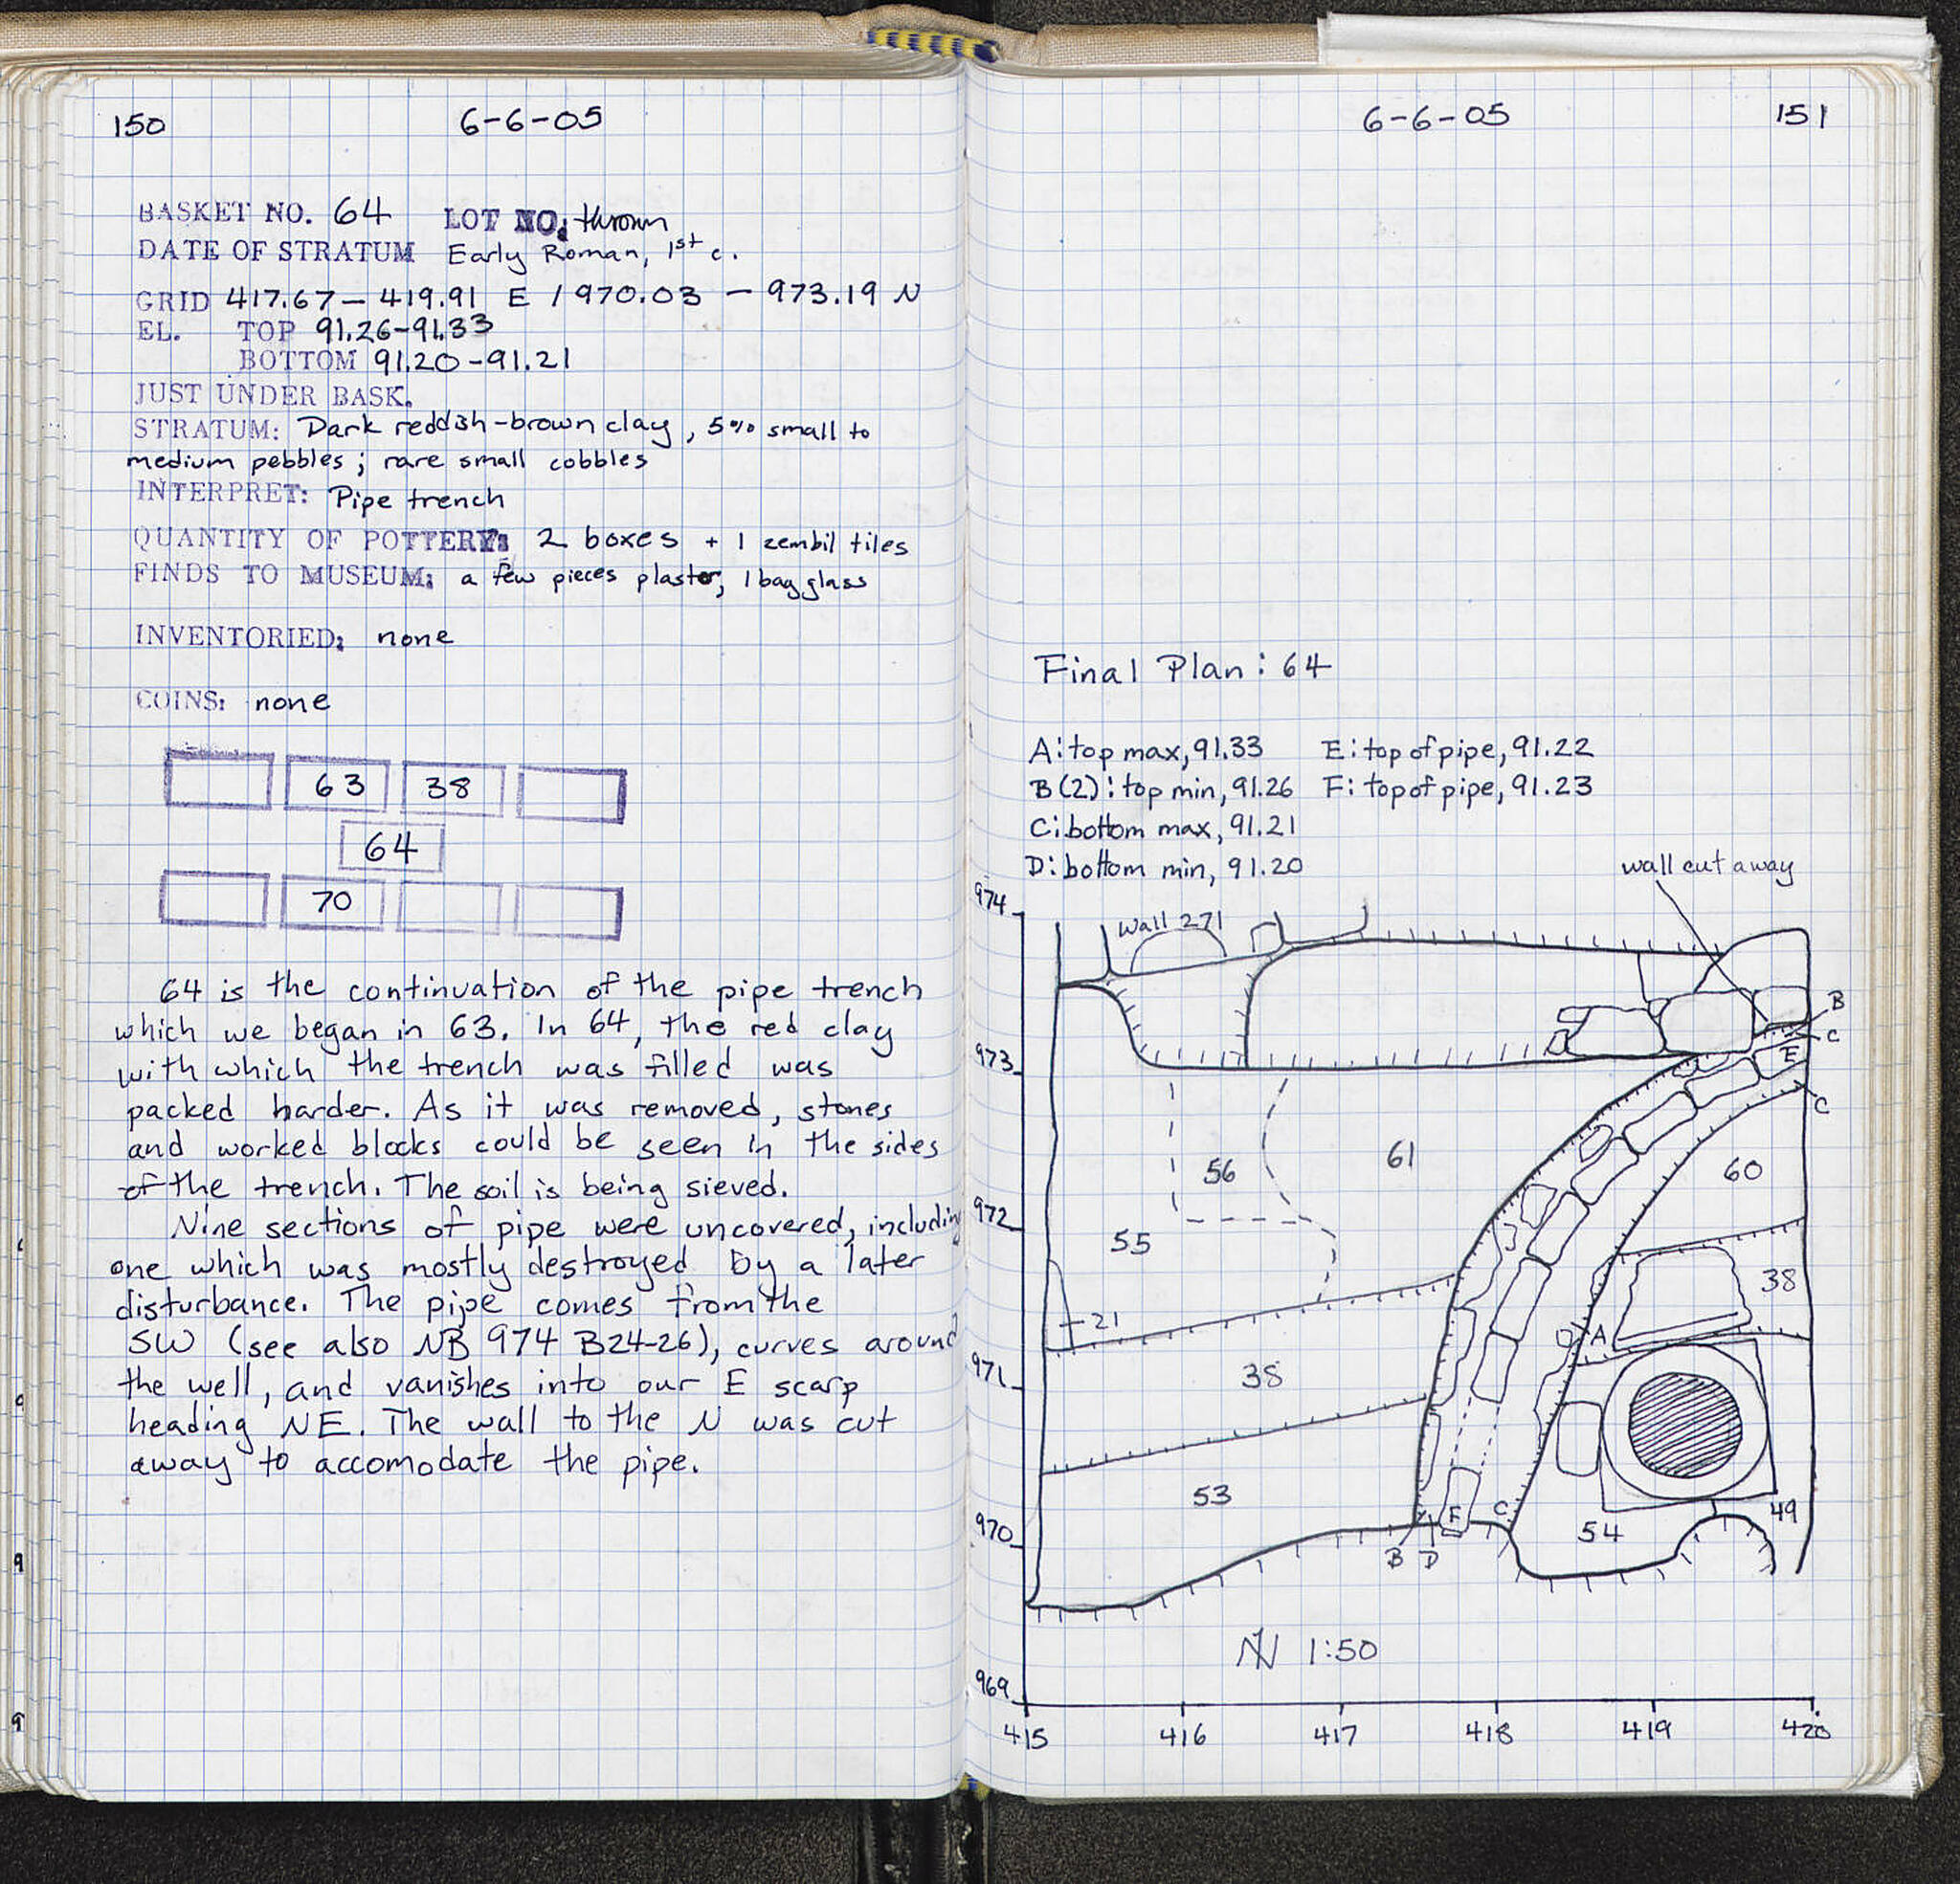 150 6-6-05
BASKET NO. 64 LOT NO: thrown
DATE OF STRATUM Early Roman, 1st c.
GRID 417.67-419.91 E / 970.03 - 973.19 N
EL. TOP 91.26-91.33
BOTTOM 91.20-91.21
JUST UNDER BASK.
STRATUM: Dark reddish-brown clay, 5% small to
medium pebbles; rare small cobbles
INTERPRET: Pipe trench
QUANTITY OF POTTERY: 2 boxes + 1 zembil tiles
FINDS TO MUSEUM: a few pieces plaster, 1 bag glass
INVENTORIED: none
COINS: none
63 38
64
70
64 is the continuation of the pipe trench
which we began in 63. In 64, the red clay
with which the trench was filled was
packed harder. As it was removed, stones
and worked blocks could be seen in the sides
of the trench. The soil is being sieved.
Nine sections of pipe were uncovered, including
one which was mostly destroyed by a later
disturbance. The pipe comes from the
SW (see also NB 974 B24-26), curves around
the well, and vanishes into our E scarp
heading NE. The wall to the N was cut
away to accomodate the pipe.
6-6-05 151
Final Plan: 64
A: top max, 91.33 E: top of pipe, 91.22
B(2): top min, 91.26 F: top of pipe, 91.23
C: bottom max, 91.21
D: bottom min, 91.20
wall cut away
974
wall 271
B
C
973
E
C
56
61
60
972
55
38
21
A
971
38
53
F
C
49
970
54
B D
N 1:50
969
415 416 417 418 419 420